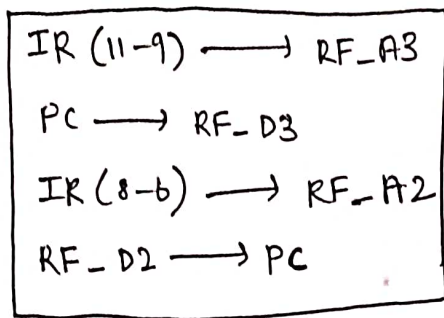 IR (11-9) ⟶ RF_A3
PC ⟶ RF_D3
IR (8-6) ⟶ RF_A2
RF_D2 ⟶ PC